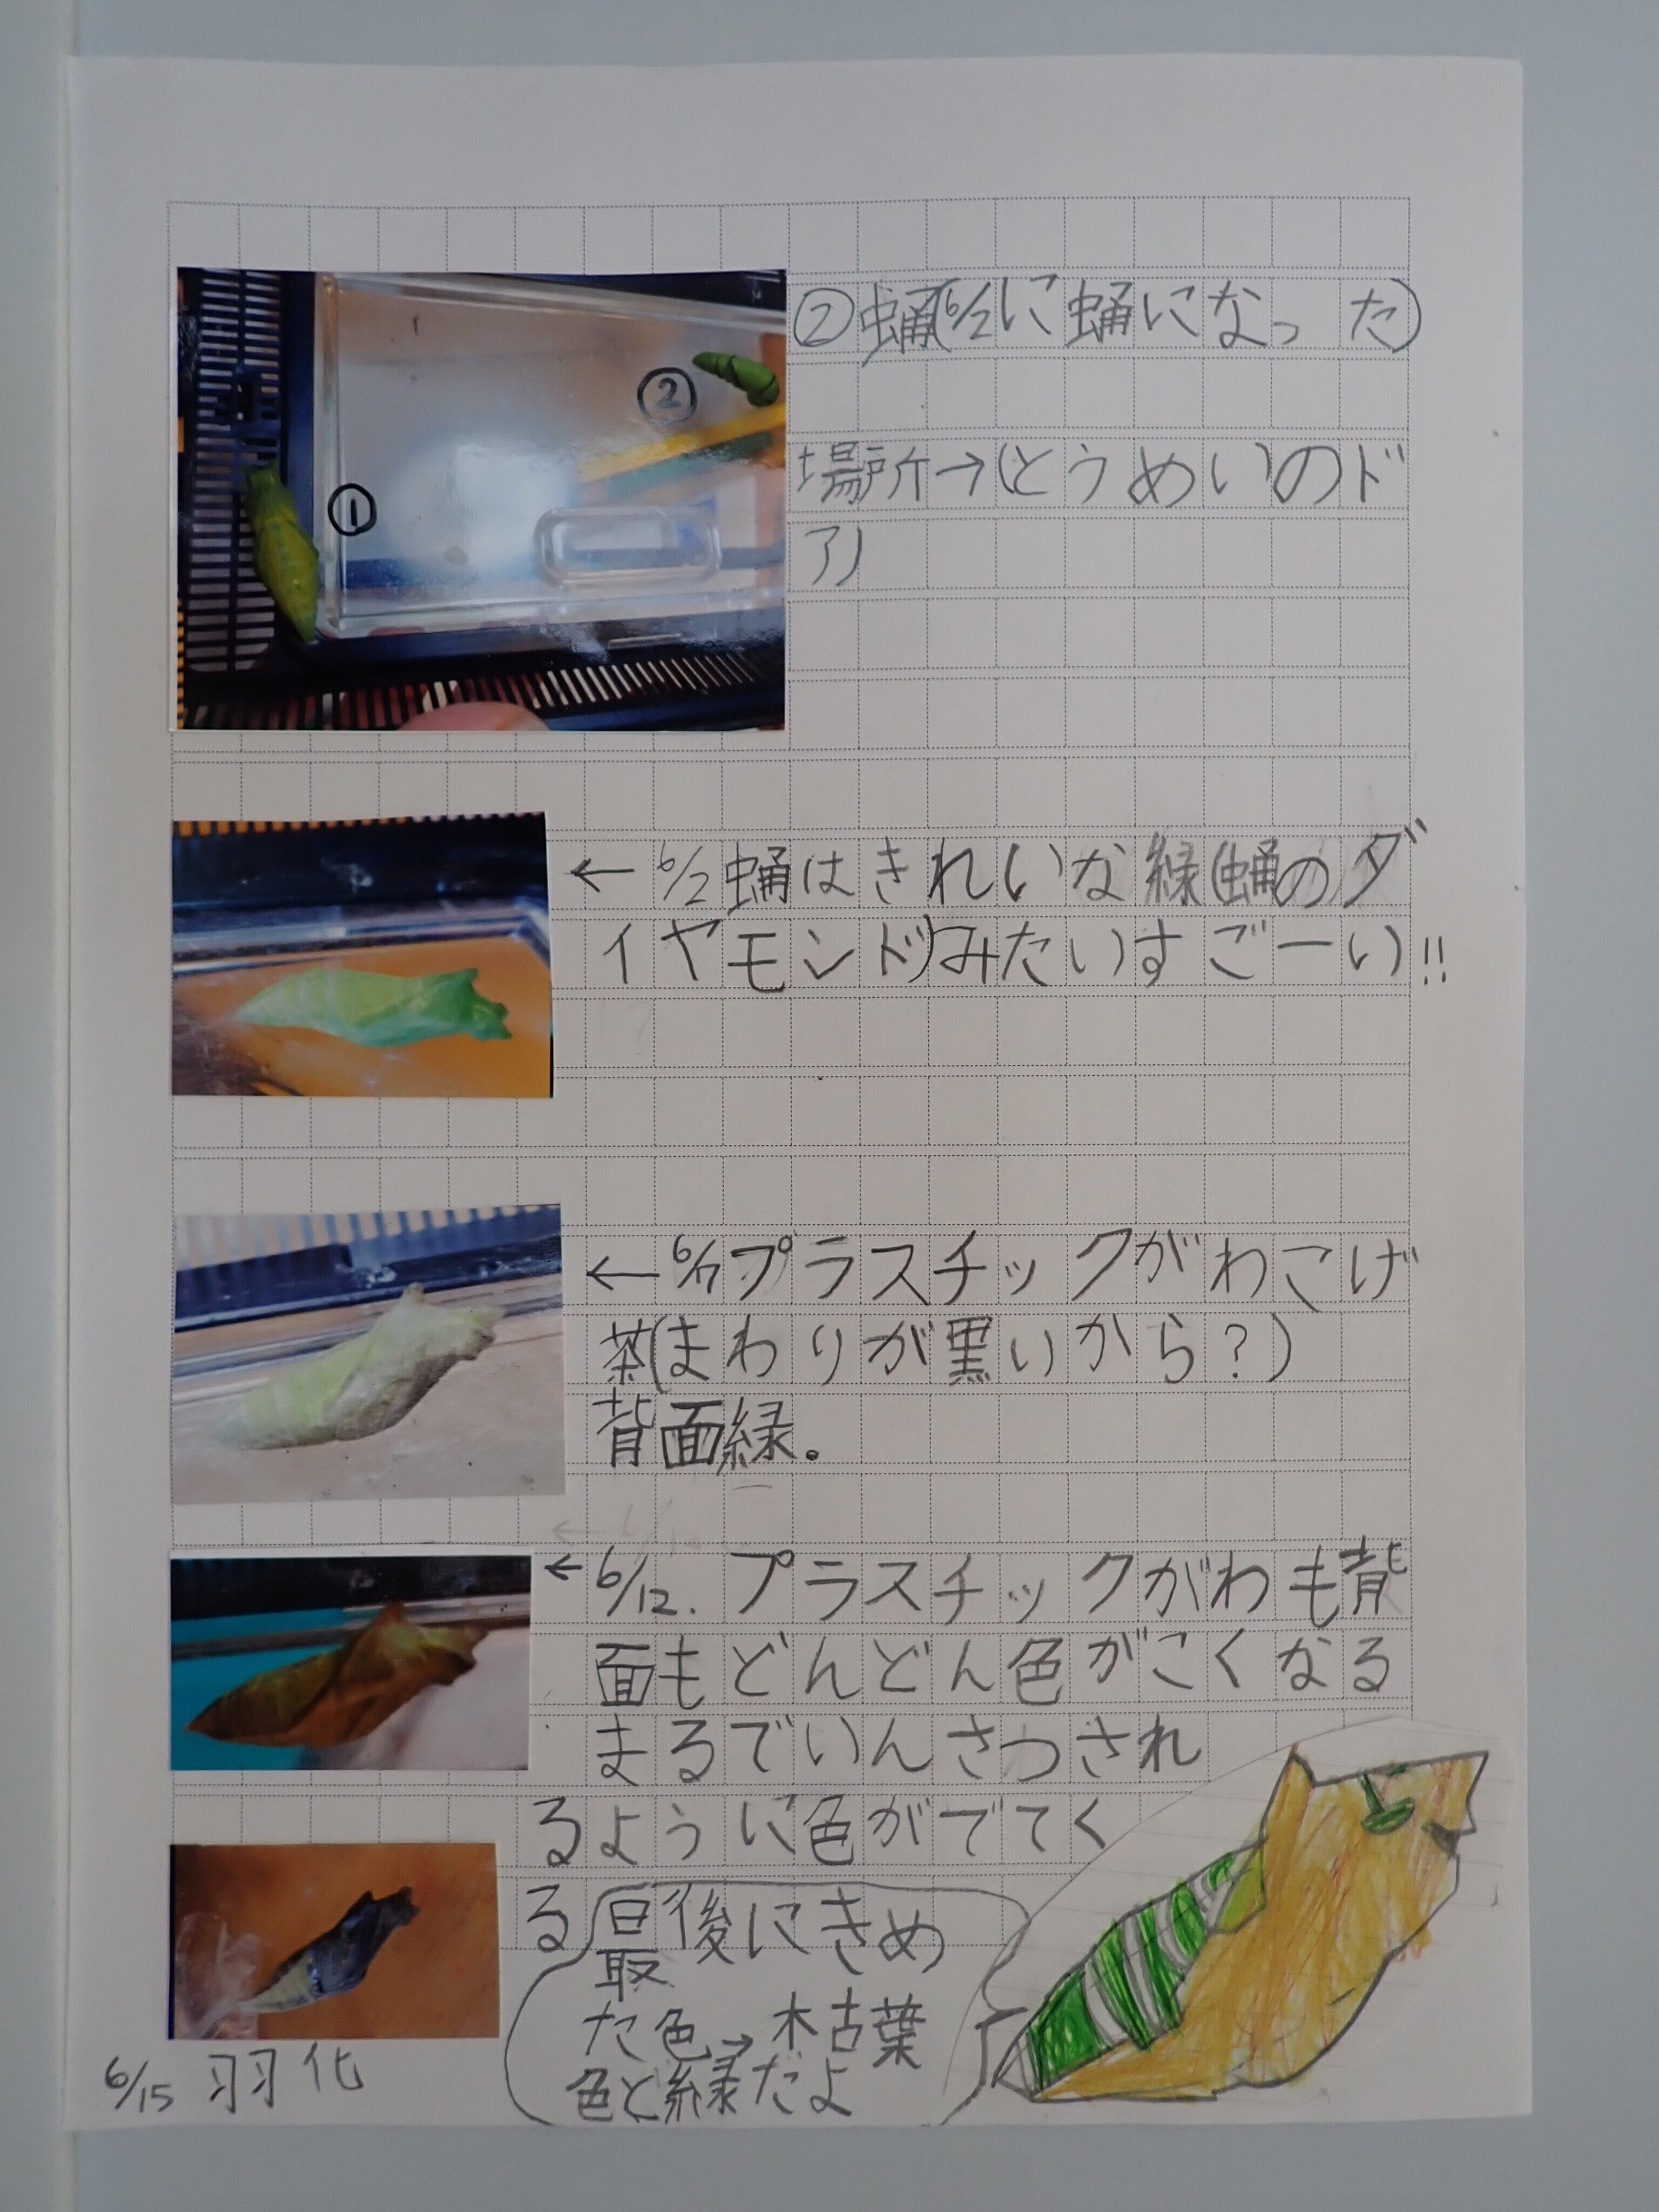 ②蛹(6/2に蛹になった)
②
①
場所→(とうめい)のド
ア)
←6/2蛹はきれいな緑(蛹のダ
イヤモンド)みたいすごーい!!
←6/7プラスチックがわこげ
茶(まわりが黒いから?)
背面緑。
←6/12.プラスチックがわも背
面もどんどん色がこくなる
まるでいんさつされ
るように色がでてく
る
最後にきめ
た色→枯葉
色と緑だよ
6/15羽化